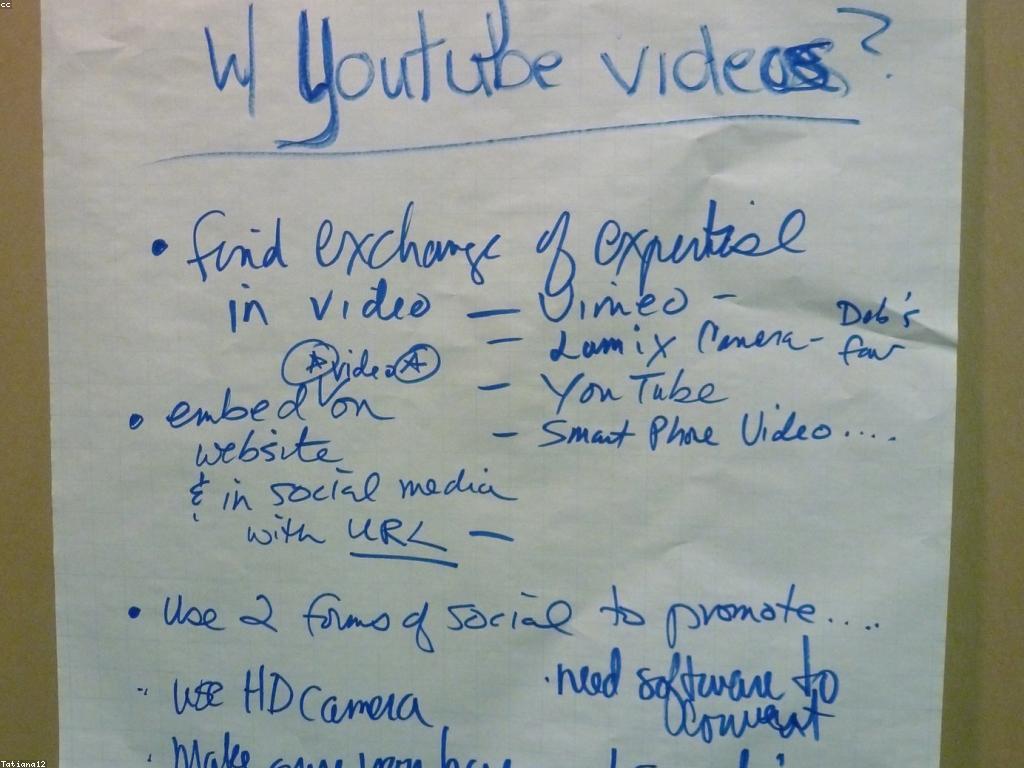 cc
W/ Youtube videos?
• find exchange of expertise
in video — Vimeo –
– Lumix Camera – Deb's fav
A video A
– YouTube
• embed on
– Smart Phone Video....
website
& in social media
with URL —
• Use 2 forms of social to promote....
• use HD camera
• need software to
convert
• Make sure you have
Tatiana12